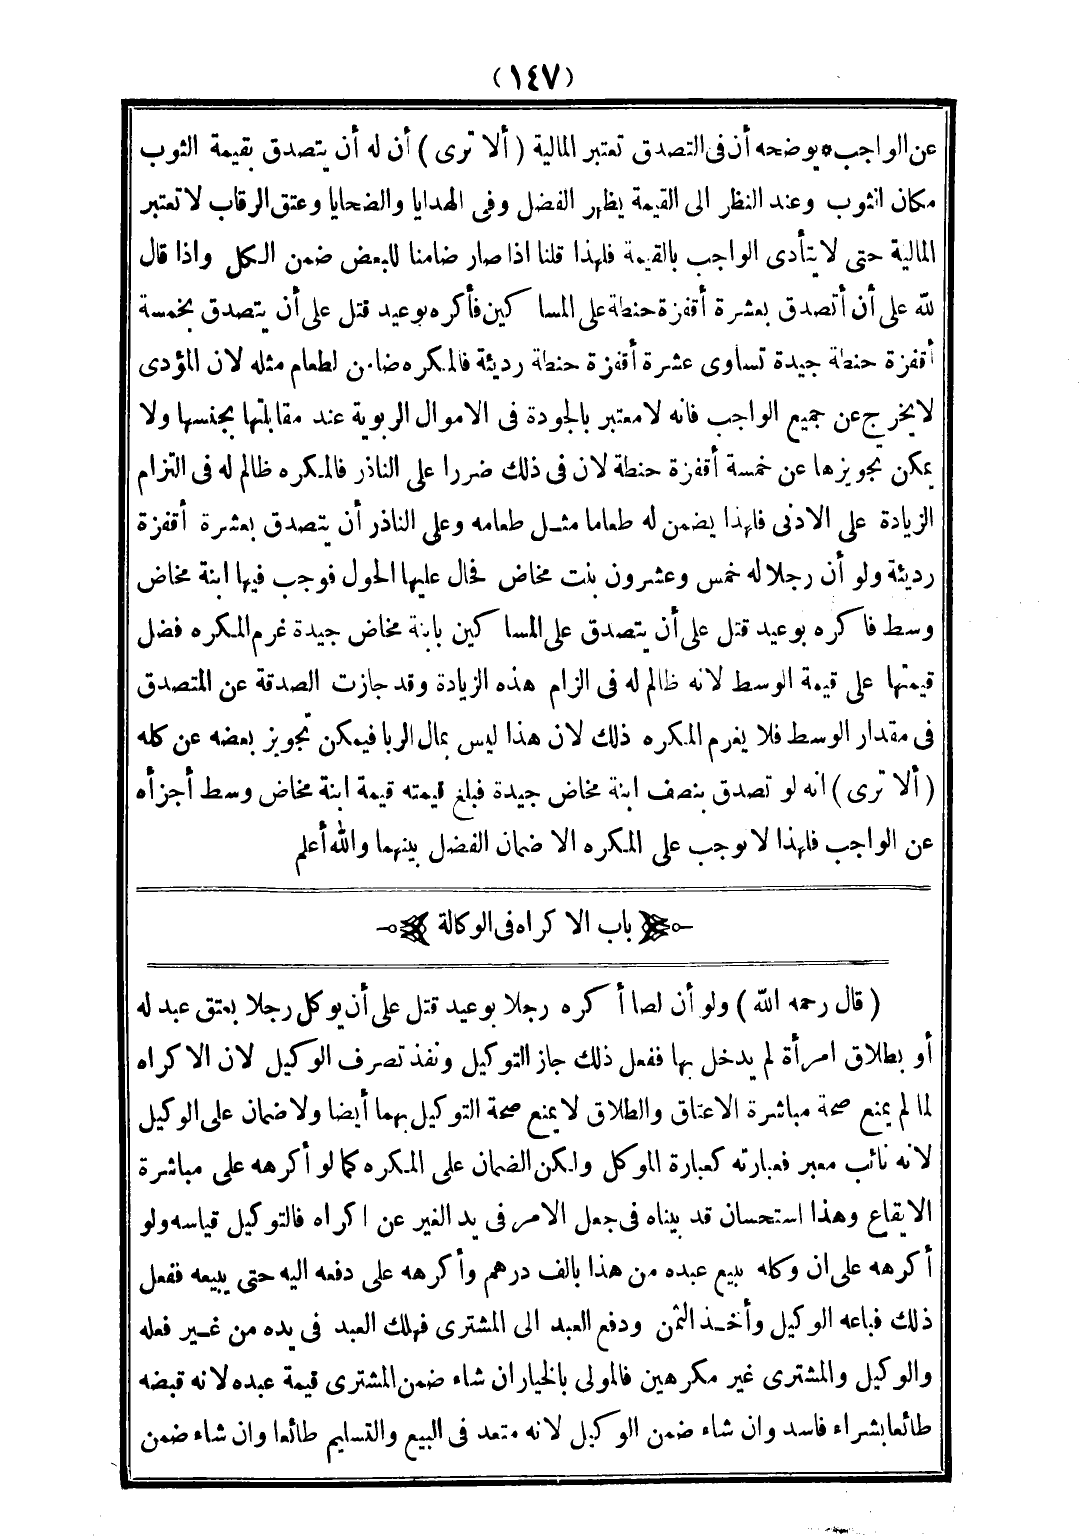 (١٤٧)
عن الواجب * يوضحه أن فى التصدق تعتبر المالية ( ألا ترى ) أن له أن يتصدق بقيمة الثوب
مكان الثوب وعند النظر الى القيمة يظهر الفضل وفى الهدايا والضحايا وعتق الرقاب لا تعتبر
المالية حتى لا يتأدى الواجب بالقيمة فلهذا قلنا اذا صار ضامنا للبعض ضمن الكل واذا قال
لله على أن أتصدق بعشرة أقفزة حنطة على المساكين فأكره بوعيد قتل على أن يتصدق بخمسة
أقفزة حنطة جيدة تساوى عشرة أقفزة حنطة رديئة فالمكره ضامن لطعام مثله لان المؤدى
لا يخرج عن جميع الواجب فانه لا معتبر بالجودة فى الاموال الربوية عند مقابلتها بجنسها ولا
يمكن تجويزها عن خمسة أقفزة حنطة لان فى ذلك ضررا على الناذر فالمكره ظالم له فى التزام
الزيادة على الادنى فلهذا يضمن له طعاما مثل طعامه وعلى الناذر أن يتصدق بعشرة أقفزة
رديئة ولو أن رجلا له خمس وعشرون بنت مخاض فحال عليها الحول فوجب فيها ابنة مخاض
وسط فاكره بوعيد قتل على أن يتصدق على المساكين بابنة مخاض جيدة غرم المكره فضل
قيمتها على قيمة الوسط لانه ظالم له فى الزام هذه الزيادة وقد جازت الصدقة عن المتصدق
فى مقدار الوسط فلا يغرم المكره ذلك لان هذا ليس بمال الربا فيمكن تجويز بعضه عن كله
( ألا ترى ) انه لو تصدق بنصف ابنة مخاض جيدة فبلغ قيمته قيمة ابنة مخاض وسط أجزأه
عن الواجب فلهذا لا يوجب على المكره الا ضمان الفضل بينهما والله أعلم
باب الاكراه فى الوكالة
( قال رحمه الله ) ولو أن لصا أكره رجلا بوعيد قتل على أن يوكل رجلا بعتق عبد له
أو بطلاق امرأة لم يدخل بها ففعل ذلك جاز التوكيل ونفذ تصرف الوكيل لان الاكراه
لما لم يمنع صحة مباشرة الاعتاق والطلاق لا يمنع صحة التوكيل بهما أيضا ولا ضمان على الوكيل
لانه نائب معبر فعبارته كعبارة الموكل ولكن الضمان على المكره كما لو أكرهه على مباشرة
الايقاع وهذا استحسان قد بيناه فى جعل الامر فى يد الغير عن اكراه فالتوكيل قياسه ولو
أكرهه على ان وكله ببيع عبده من هذا بالف درهم وأكرهه على دفعه اليه حتى يبيعه ففعل
ذلك فباعه الوكيل وأخذ الثمن ودفع العبد الى المشترى فهلك العبد فى يده من غير فعله
والوكيل والمشترى غير مكرهين فالمولى بالخيار ان شاء ضمن المشترى قيمة عبده لانه قبضه
طائعا بشراء فاسد وان شاء ضمن الوكيل لانه متعد فى البيع والتسليم طائعا وان شاء ضمن